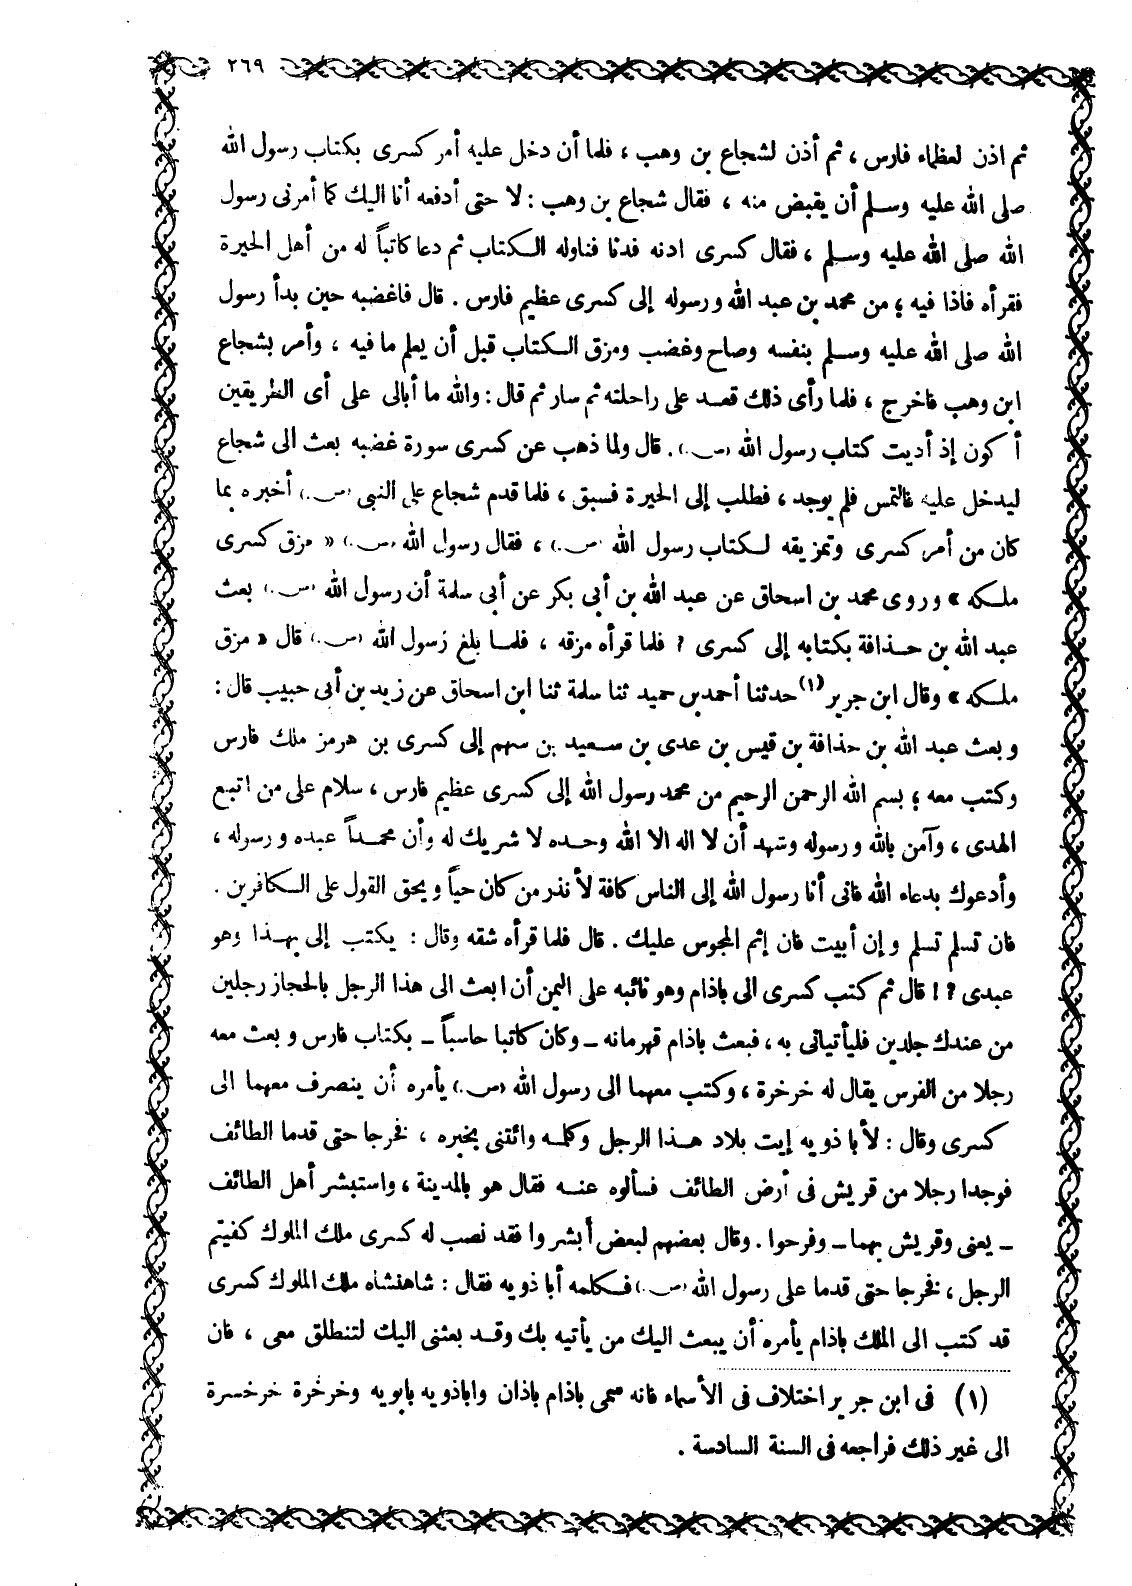 ٢٦٩
ثم اذن لعظماء فارس ، ثم أذن لشجاع بن وهب ، فلما أن دخل عليه أمر كسرى بكتاب رسول الله
صلى الله عليه وسلم أن يقبض منه ، فقال شجاع بن وهب : لا حتى أدفعه أنا اليك كما أمرنى رسول
الله صلى الله عليه وسلم ، فقال كسرى ادنه فدنا فناوله الكتاب ثم دعا كاتباً له من أهل الحيرة
فقرأه فاذا فيه ؛ من محمد بن عبد الله ورسوله إلى كسرى عظيم فارس . قال فاغضبه حين بدأ رسول
الله صلى الله عليه وسلم بنفسه وصاح وغضب ومزق الكتاب قبل أن يعلم ما فيه ، وأمر بشجاع
ابن وهب فاخرج ، فلما رأى ذلك قعد على راحلته ثم سار ثم قال : والله ما أبالى على أى الطريقين
أكون إذ أديت كتاب رسول الله (ص.) . قال ولما ذهب عن كسرى سورة غضبه بعث الى شجاع
ليدخل عليه فالتمس فلم يوجد ، فطلب إلى الحيرة فسبق ، فلما قدم شجاع على النبى (ص.) أخبره بما
كان من أمر كسرى وتمزيقه لكتاب رسول الله (ص.) ، فقال رسول الله (ص.) « مزق كسرى
ملكه » وروى محمد بن اسحاق عن عبد الله بن أبى بكر عن أبى سلمة أن رسول الله (ص.) بعث
عبد الله بن حذافة بكتابه إلى كسرى ؟ فلما قرأه مزقه ، فلما بلغ رسول الله (ص.) قال « مزق
ملكه » وقال ابن جرير (١) حدثنا أحمد بن حميد ثنا سلمة ثنا ابن اسحاق عن زيد بن أبى حبيب قال :
وبعث عبد الله بن حذافة بن قيس بن عدى بن سعيد بن سهم إلى كسرى بن هرمز ملك فارس
وكتب معه ؛ بسم الله الرحمن الرحيم من محمد رسول الله إلى كسرى عظيم فارس ، سلام على من اتبع
الهدى ، وآمن بالله ورسوله وشهد أن لا اله الا الله وحده لا شريك له وأن محمداً عبده ورسوله ،
وأدعوك بدعاء الله فانى أنا رسول الله إلى الناس كافة لأنذر من كان حياً ويحق القول على الكافرين .
فان تسلم تسلم وإن أبيت فان إثم المجوس عليك . قال فلما قرأه شقه وقال : يكتب إلى بهذا وهو
عبدى ؟ ! قال ثم كتب كسرى الى باذام وهو نائبه على اليمن أن ابعث الى هذا الرجل بالحجاز رجلين
من عندك جلدين فليأتيانى به ، فبعث باذام قهرمانه ــ وكان كاتبا حاسباً ــ بكتاب فارس وبعث معه
رجلا من الفرس يقال له خرخرة ، وكتب معهما الى رسول الله (ص.) يأمره أن ينصرف معهما الى
كسرى وقال : لأبا ذويه إيت بلاد هذا الرجل وكلمه وائتنى بخبره ، فخرجا حتى قدما الطائف
فوجدا رجلا من قريش فى أرض الطائف فسألوه عنه فقال هو بالمدينة ، واستبشر أهل الطائف
ــ يعنى وقريش بهما ــ وفرحوا . وقال بعضهم لبعض أبشروا فقد نصب له كسرى ملك الملوك كفيتم
الرجل ، فخرجا حتى قدما على رسول الله (ص.) فكلمه أبا ذويه فقال : شاهنشاه ملك الملوك كسرى
قد كتب الى الملك باذام يأمره أن يبعث اليك من يأتيه بك وقد بعثنى اليك لتنطلق معى ، فان
(١) فى ابن جرير اختلاف فى الأسماء فانه سمى باذام باذان واباذويه بابويه وخرخرة خرخسرة
الى غير ذلك فراجعه فى السنة السادسة .